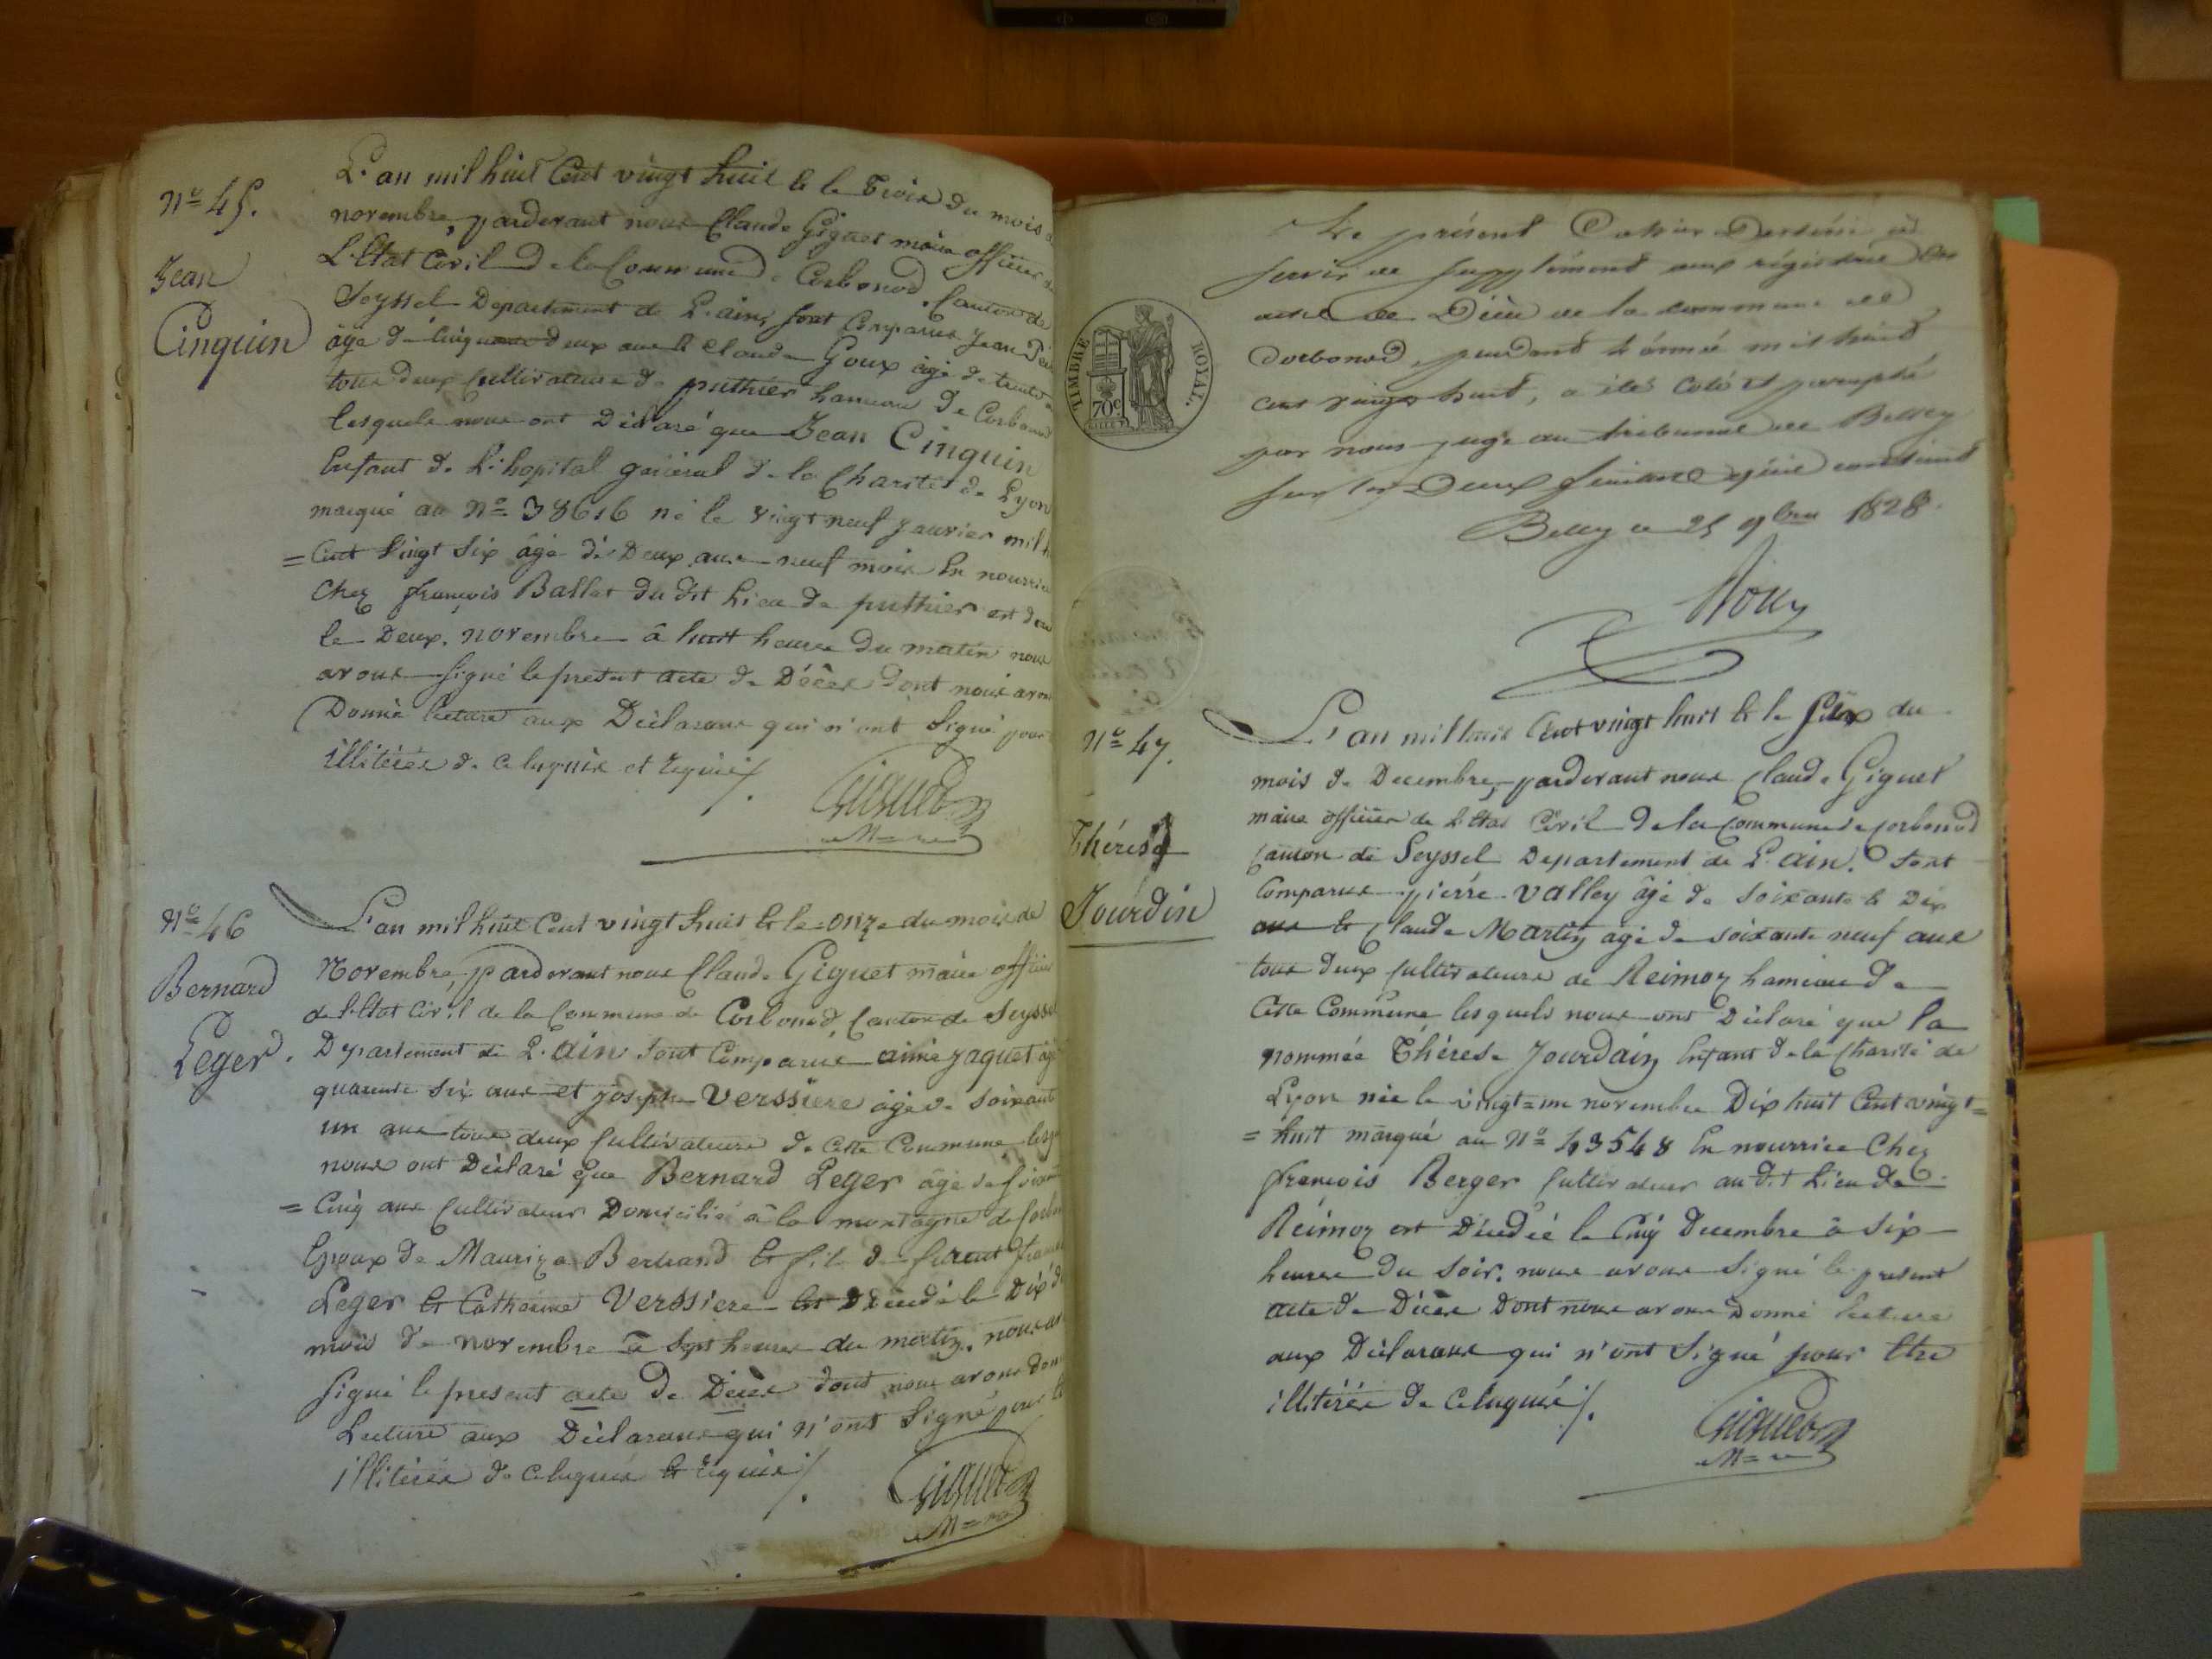 N° 45.
Jean
Cinquin
L'an mil huit Cent vingt huit & le Trois du mois
novembre, pardevant nous Claude Giguet maire officier
L'Etat Civil de la Commune de Corbonod, Canton de
Seyssel Departement de L'ain, sont Comparus Jean
âgé de Cinquante deux ans & Claude Goux âgé de trente
tous deux Cultivateurs de puthier hameau de Corbonod
lesquels nous ont Déclaré que Jean Cinquin
Enfant de L'hopital général de la Charité de Lyon
marqué au N° 38616 né le vingt neuf Janvier mil
= Cent Vingt Six âgé de Deux ans neuf mois En nourrice
Chez françois Ballet du dit Lieu de puthier est
le Deux novembre à huit heures du matin nous
avons signé le present acte de Décès dont nous avons
Donné lecture aux Déclarans qui n'ont Signé pour
illitérés de ce enquis et requis /.
Giguet
M=re
N° 46
Bernard
Leger.
L'an mil huit Cent vingt huit & le onze du mois de
Novembre, pardevant nous Claude Giguet maire officier
de L'Etat Civil de la Commune de Corbonod, Canton de Seyssel
Departement de L'ain sont Comparus aimé jaquet âgé
quarente six ans et joseph Verssiere âgé de soixante
un ans tous deux Cultivateurs de Cette Commune
nous ont Déclaré que Bernard Leger âgé de
= Cinq ans Cultivateur Domicilié à la montagne de
Epoux de Mauriza Bertrand & fils de furent
Leger & Catherine Verssiere Est Décédé le Dix
mois de novembre à Sept heures du matin, nous
signé le present acte de Décès dont nous avons
Lecture aux Déclarans qui n'ont Signé pour
illitérés de ce enquis & requis /.
Giguet
M=re
Le présent Cahier Destiné à
servir de supplément aux régistres des
actes de Décès de la commune de
Corbonod, pendant l'année mil huit
cent vingt huit, a été Coté et paraphé
par nous juge au tribunal de Belley
sur les Deux feuillets qu'il contient
Belley ce 25 9bre 1828.
TIMBRE ROYAL.
70c
N° 47.
Thérèse
Jourdin
L'an mil huit Cent vingt huit & le Six du
mois de Decembre, pardevant nous Claude Giguet
maire officier de L'Etat Civil de la Commune de Corbonod
Canton de Seyssel Departement de L'ain. Sont
Comparus pierre Valley âgé de Soixante & Dix
ans & Claude Martin âgé de soixante neuf ans
tous deux Cultivateurs de Reimoz hameau de
Cette Commune lesquels nous ont Déclaré que la
nommée Thérèse Jourdain Enfant de la Charité de
Lyon née le vingt=un novembre Dix huit Cent vingt=
= huit marqué au N° 43548 En nourrice Chez
françois Berger Cultivateur au dit Lieu de
Reimoz est Décédée le Cinq Decembre à Six
heures du Soir. nous avons Signé le present
acte de Décès Dont nous avons Donné lecture
aux Déclarans qui n'ont Signé pour Etre
illitérés de ce enquis /.
Giguet
M=re